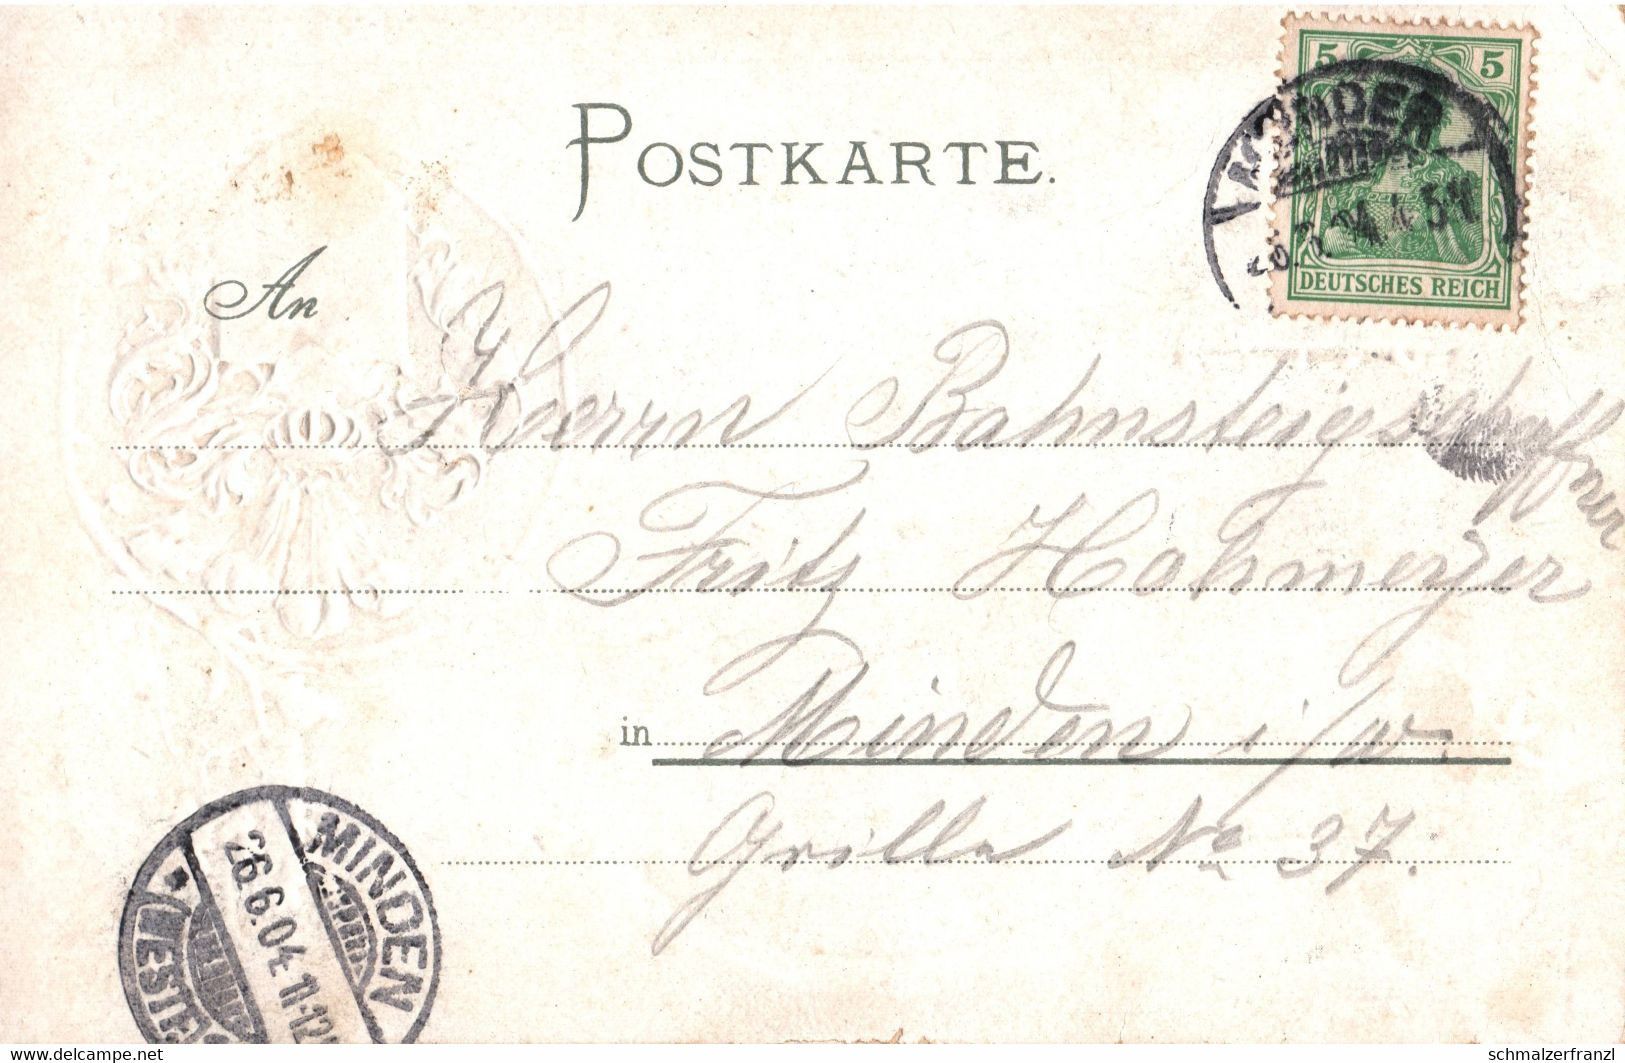 POSTKARTE.
5 5
DEUTSCHES REICH
An
Herrn Bahnsteigschaffner
Fritz Hohmeyer
in Minden i/W.
Grille No 37.
MINDEN
26.6.04. 11-12
WESTF
www.delcampe.net
schmalzerfranzl